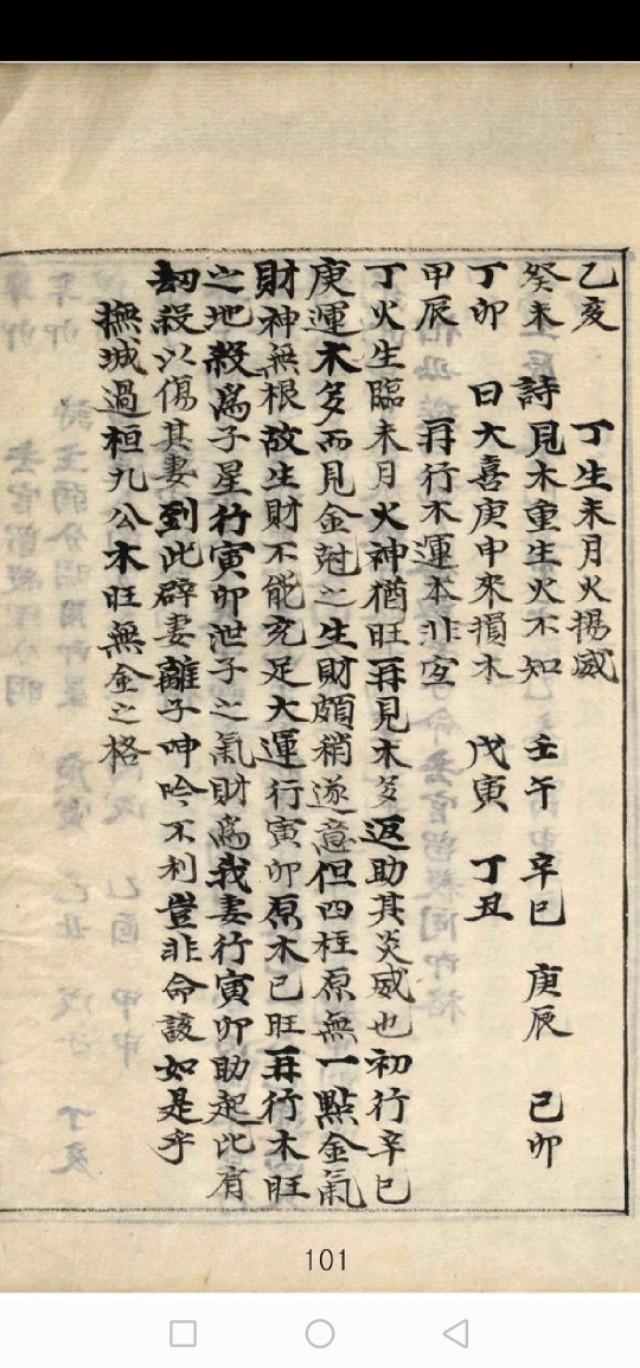 乙亥　丁生未月火揚威
癸未　詩　見木重生火不知　壬午　辛巳　庚辰　己卯
丁卯　曰　大喜庚申來損木　戊寅　丁丑
甲辰　再行木運本非宜
丁火生臨未月火神猶旺再見木多返助其炎威也初行辛巳
庚運木多而見金尅之生財頗稍遂意但四柱原無一點金氣
財神無根故生財不能充足大運行寅卯原木已旺再行木旺
之地殺爲子星行寅卯泄子之氣財爲我妻行寅卯助起比肩
劫殺以傷其妻到此辟妻離子呻吟不利豈非命該如是乎
撫城過桓九公木旺無金之格
101